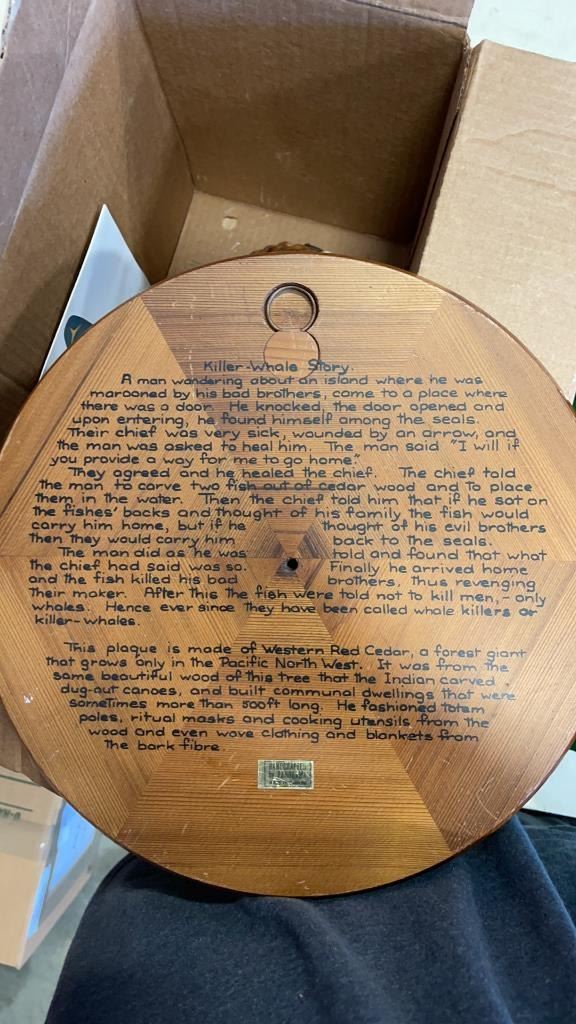 Killer-Whale Story.
A man wandering about an island where he was
marooned by his bad brothers, came to a place where
there was a door. He knocked, the door opened and
upon entering, he found himself among the seals.
Their chief was very sick, wounded by an arrow, and
the man was asked to heal him. The man said "I will if
you provide a way for me to go home."
They agreed and he healed the chief. The chief told
the man to carve two fish out of cedar wood and to place
them in the water. Then the chief told him that if he sat on
the fishes' backs and thought of his family the fish would
carry him home, but if he thought of his evil brothers
then they would carry him back to the seals.
The man did as he was told and found that what
the chief had said was so. Finally he arrived home
and the fish killed his bad brothers, thus revenging
their maker. After this the fish were told not to kill men,- only
whales. Hence ever since they have been called whale killers or
killer-whales.
This plaque is made of Western Red Cedar, a forest giant
that grows only in the Pacific North West. It was from the
same beautiful wood of this tree that the Indian carved
dug-out canoes, and built communal dwellings that were
sometimes more than 500ft long. He fashioned totem
poles, ritual masks and cooking utensils from the
wood and even wove clothing and blankets from
the bark fibre.
HANDCRAFTED